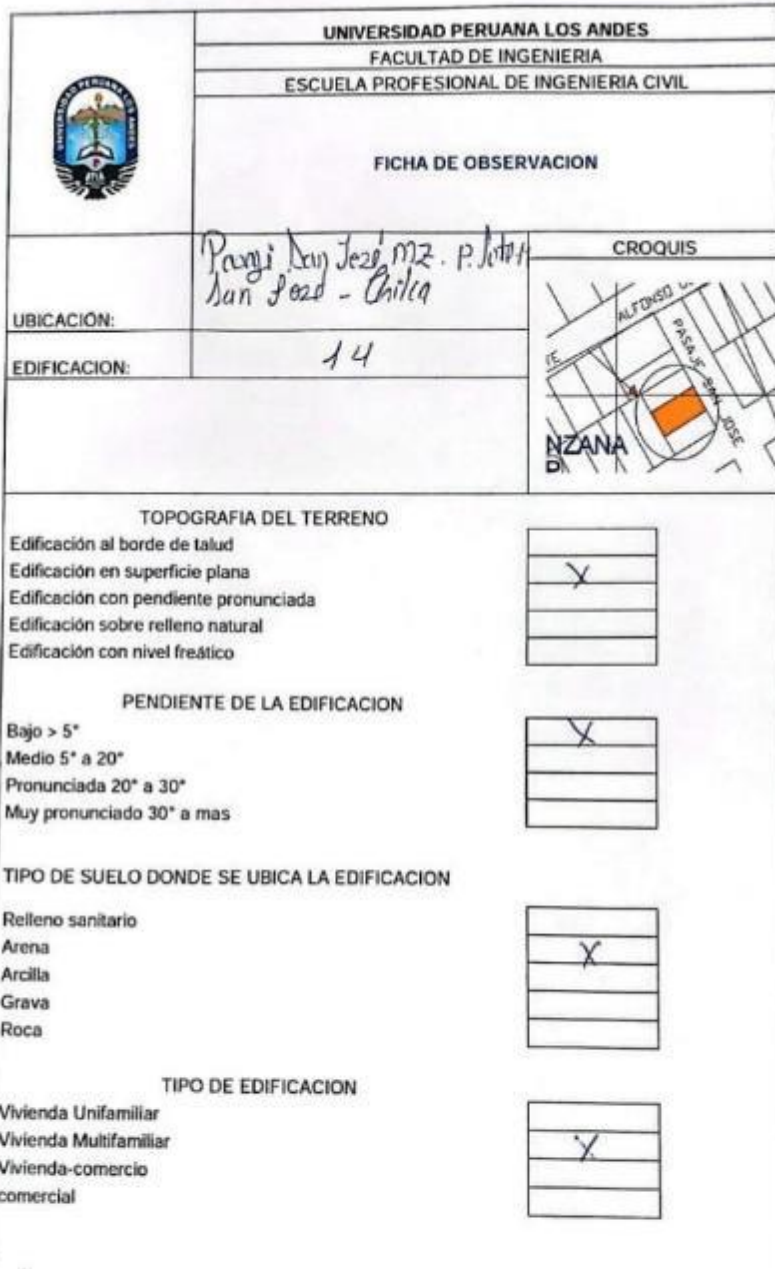 UNIVERSIDAD PERUANA LOS ANDES
FACULTAD DE INGENIERIA
ESCUELA PROFESIONAL DE INGENIERIA CIVIL
UNIVERSIDAD PERUANA LOS ANDES
FICHA DE OBSERVACION
UBICACIÓN:
San José MZ. P.
San José - Chilca
EDIFICACION:
14
CROQUIS
ALFONSO
PASAJE SAN JOSE
NZANA
TOPOGRAFIA DEL TERRENO
Edificación al borde de talud
Edificación en superficie plana X
Edificación con pendiente pronunciada
Edificación sobre relleno natural
Edificación con nivel freático
PENDIENTE DE LA EDIFICACION
Bajo > 5° X
Medio 5° a 20°
Pronunciada 20° a 30°
Muy pronunciado 30° a mas
TIPO DE SUELO DONDE SE UBICA LA EDIFICACION
Relleno sanitario
Arena X
Arcilla
Grava
Roca
TIPO DE EDIFICACION
Vivienda Unifamiliar
Vivienda Multifamiliar X
Vivienda-comercio
comercial